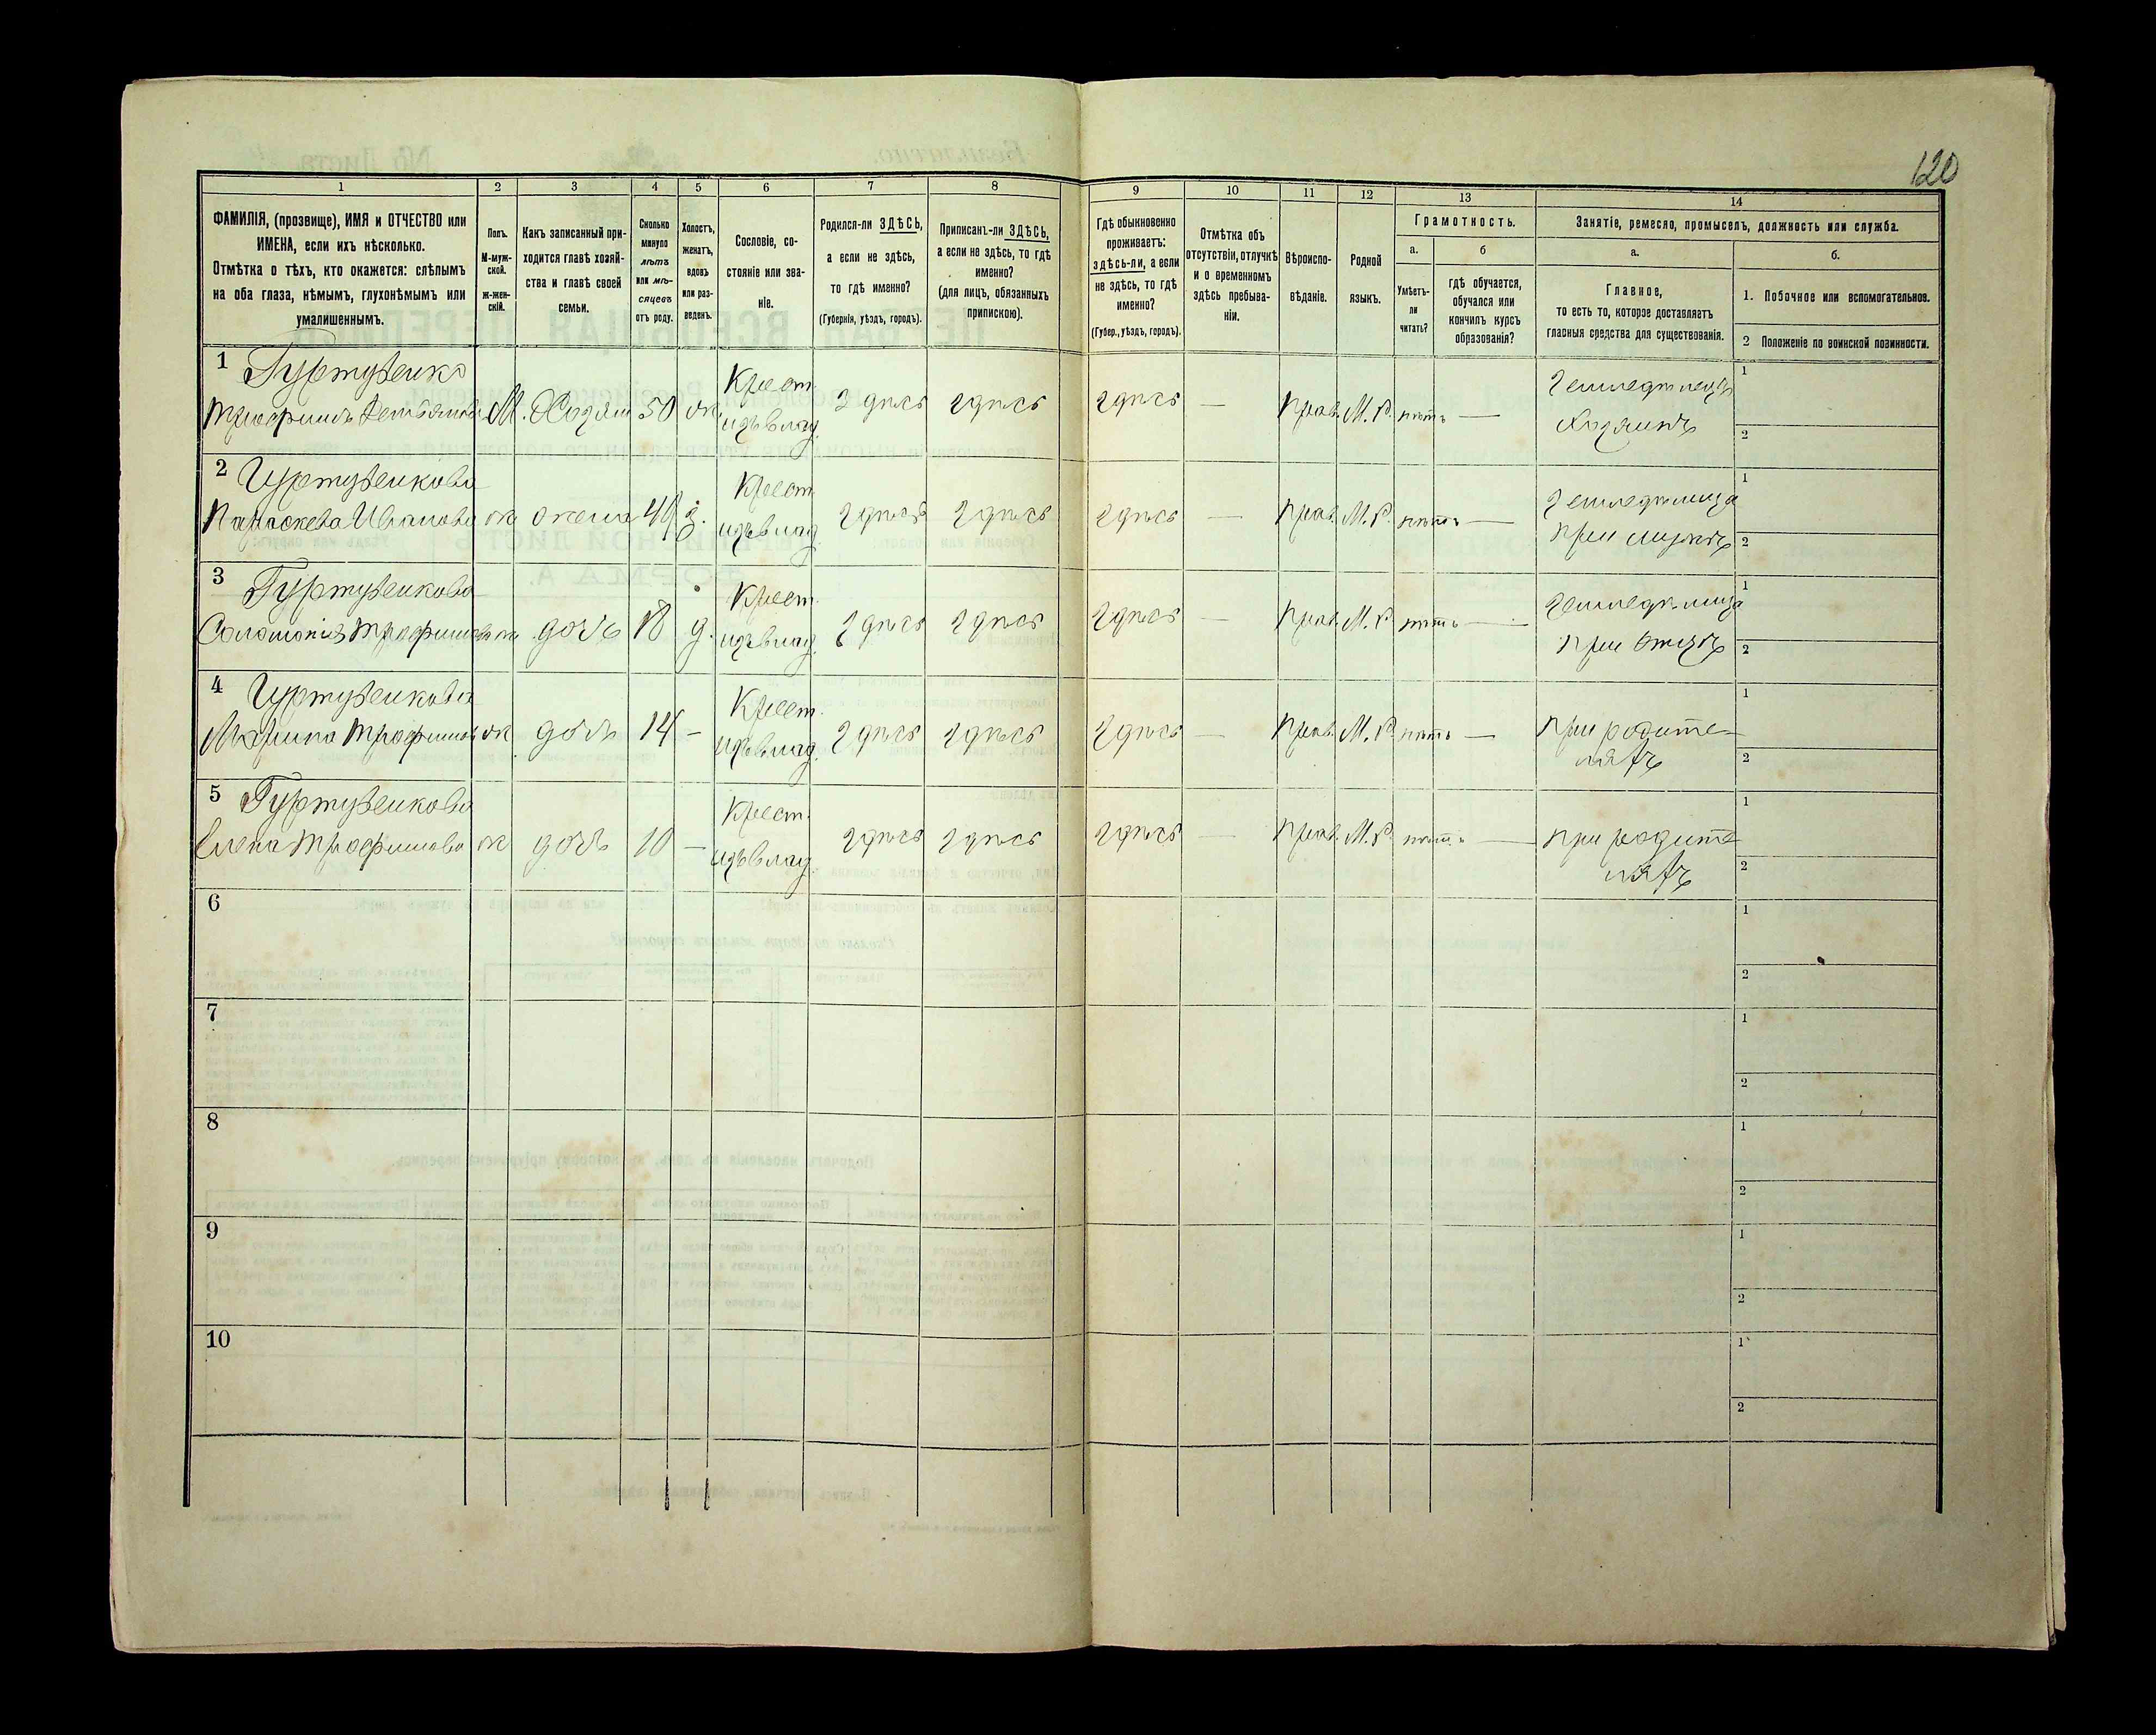 120
1 2 3 4 5 6 7 8 9 10 11 12 13 14
ФАМИЛІЯ, (прозвище), ИМЯ и ОТЧЕСТВО или
ИМЕНА, если ихъ нѣсколько.
Отмѣтка о тѣхъ, кто окажется: слѣпымъ
на оба глаза, нѣмымъ, глухонѣмымъ или
умалишеннымъ.
Полъ.
М-муж-
ской.
ж-жен-
скій.
Какъ записанный при-
ходится главѣ хозяй-
ства и главѣ своей
семьи.
Сколько
минуло
лѣтъ
или мѣ-
сяцевъ
отъ роду.
Холостъ,
женатъ,
вдовъ
или раз-
веденъ.
Сословіе, со-
стояніе или зва-
ніе.
Родился-ли ЗДѢСЬ,
а если не здѣсь,
то гдѣ именно?
(Губернія, уѣздъ, городъ).
Приписанъ-ли ЗДѢСЬ,
а если не здѣсь, то гдѣ
именно?
(для лицъ, обязанныхъ
припискою).
Гдѣ обыкновенно
проживаетъ:
здѣсь-ли, а если
не здѣсь, то гдѣ
именно?
(Губер., уѣздъ, городъ).
Отмѣтка объ
отсутствіи, отлучкѣ
и о временномъ
здѣсь пребыва-
ніи.
Вѣроиспо-
вѣданіе.
Родной
языкъ.
Грамотность.
а.
Умѣетъ-
ли
читать?
б
гдѣ обучается,
обучался или
кончилъ курсъ
образованія?
Занятіе, ремесло, промыселъ, должность или служба.
а.
Главное,
то есть то, которое доставляетъ
гласныя средства для существованія.
б.
1. Побочное или вспомогательное.
2 Положеніе по воинской повинности.
1 Гуртуенко Крест. Земледѣлецъ 1
Трофимъ М. Хозяин 50 ж. изъ влад. здѣсь здѣсь здѣсь — Прав. М.Р. нѣтъ — Хозяинъ 2
2 Гуртуенкова Крест. Земледѣлица 1
Параскева Иванова ж жена 49 з. изъ влад. здѣсь здѣсь здѣсь — Прав. М.Р. нѣтъ — при мужѣ 2
3 Гуртуенкова Крест. Земледѣлица 1
Соломонія Трофимова ж дочь 18 д. изъ влад. здѣсь здѣсь здѣсь — Прав. М.Р. нѣтъ — при отцѣ 2
4 Гуртуенкова Крест. при родите- 1
Марина Трофимова ж дочь 14 — изъ влад. здѣсь здѣсь здѣсь — Прав. М.Р. нѣтъ — ляхъ 2
5 Гуртуенкова Крест. при родите 1
Елена Трофимова ж дочь 10 — изъ влад. здѣсь здѣсь здѣсь — Прав. М.Р. нѣтъ — ляхъ 2
6 1
2
7 1
2
8 1
2
9 1
2
10 1
2